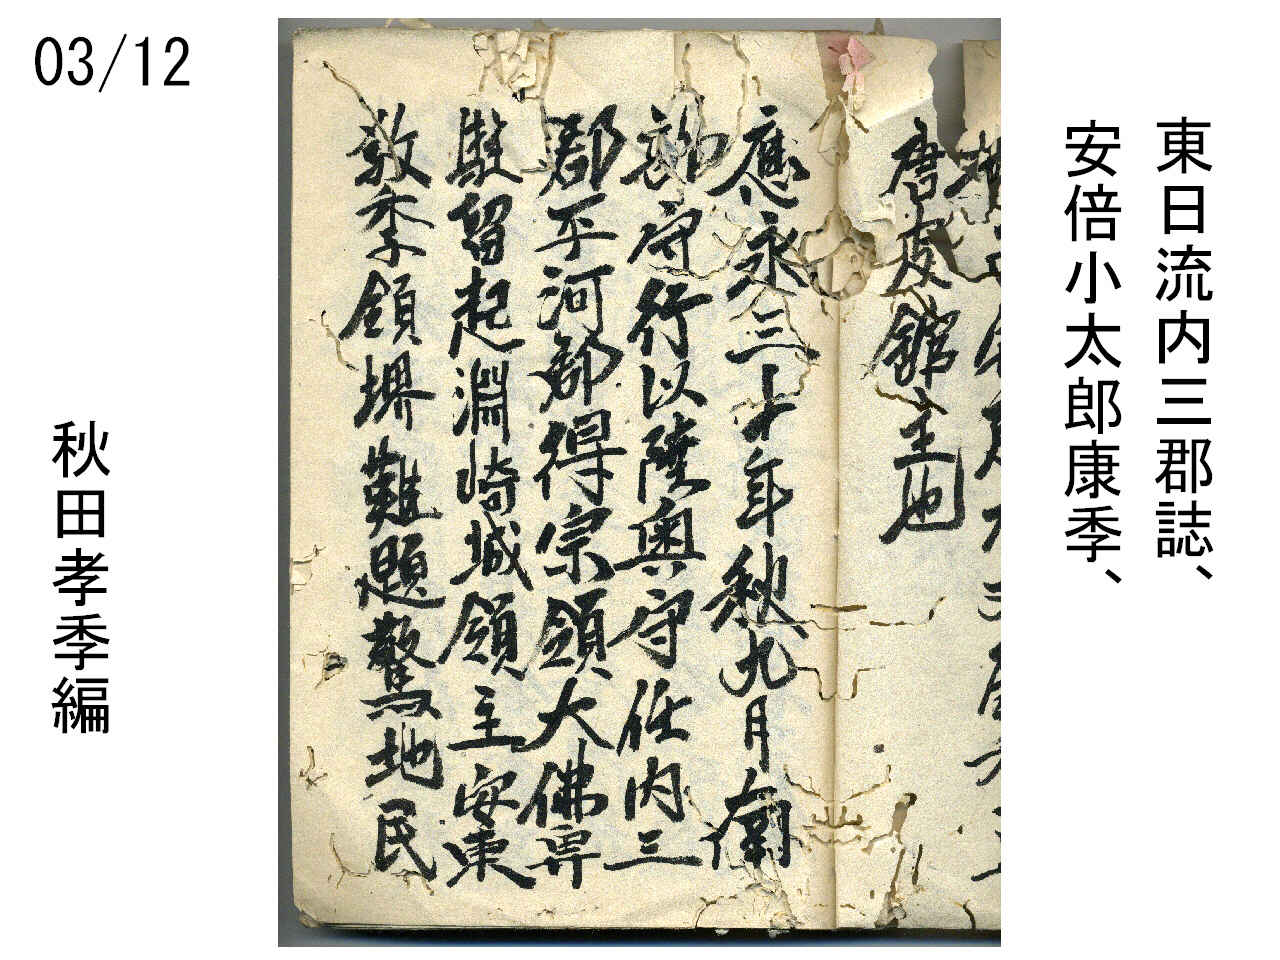 03/12
東日流内三郡誌、
安倍小太郎康季、
唐皮館主也
應永三十年秋九月蘭
守行以陸奥守任内三
郡平河郡得宗領大佛専
駐留起淵崎城領主安東
教季領堺難題驚地民
秋田孝季編